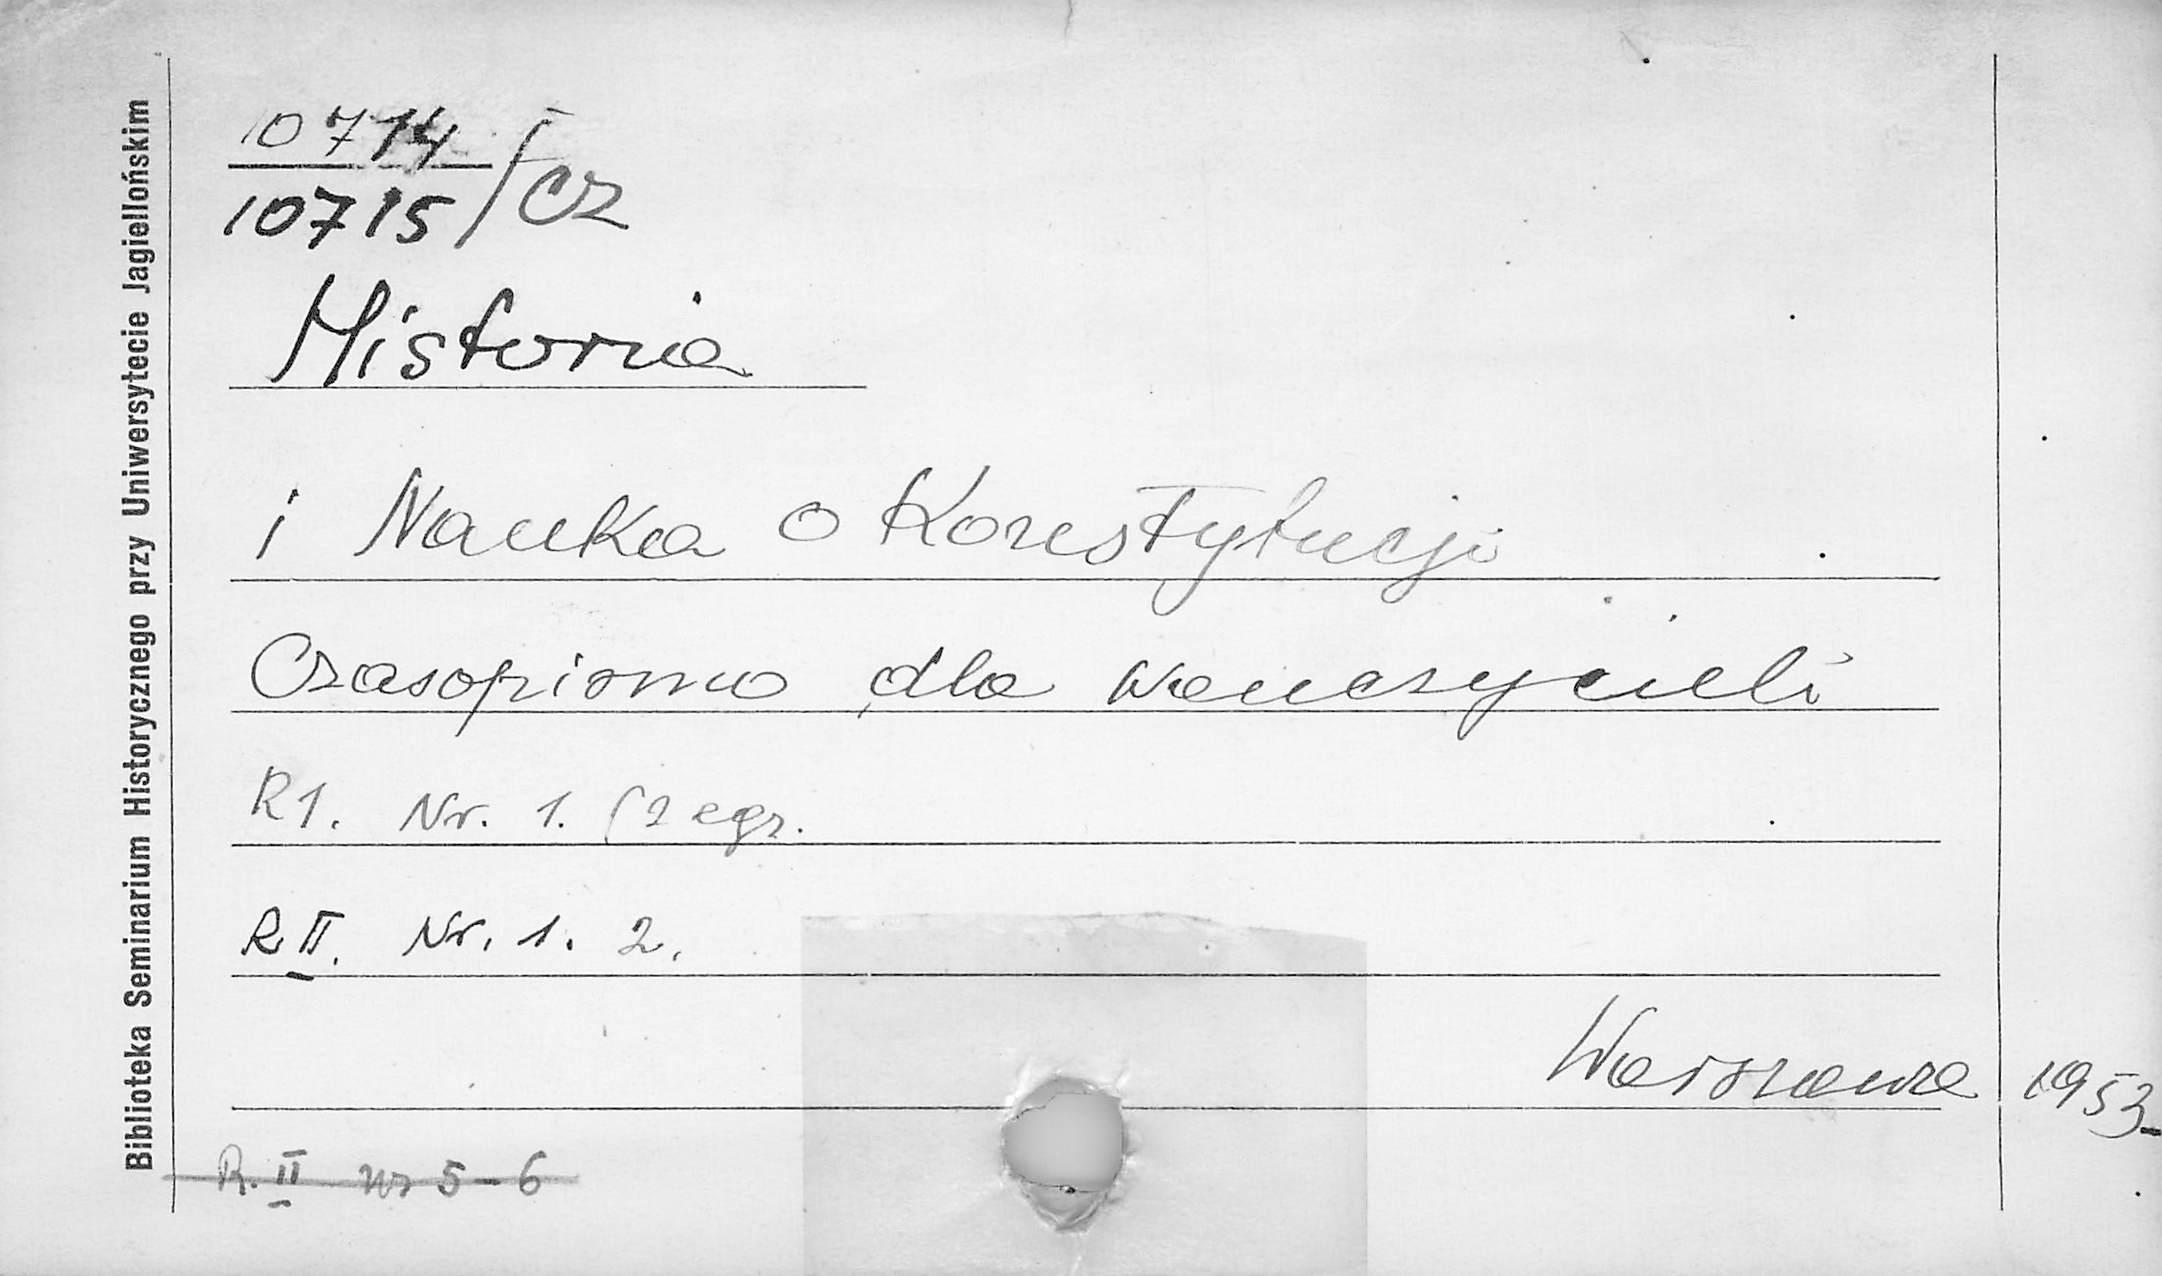 Biblioteka Seminarium Historycznego przy Uniwersytecie Jagiellońskim
10714
10715/cz
Historia
i Nauka o Konstytucji
Czasopismo dla nauczycieli
R1. Nr. 1. (2 egz.
R II. Nr. 1. 2.
Warszawa 1953
R. II nr 5-6